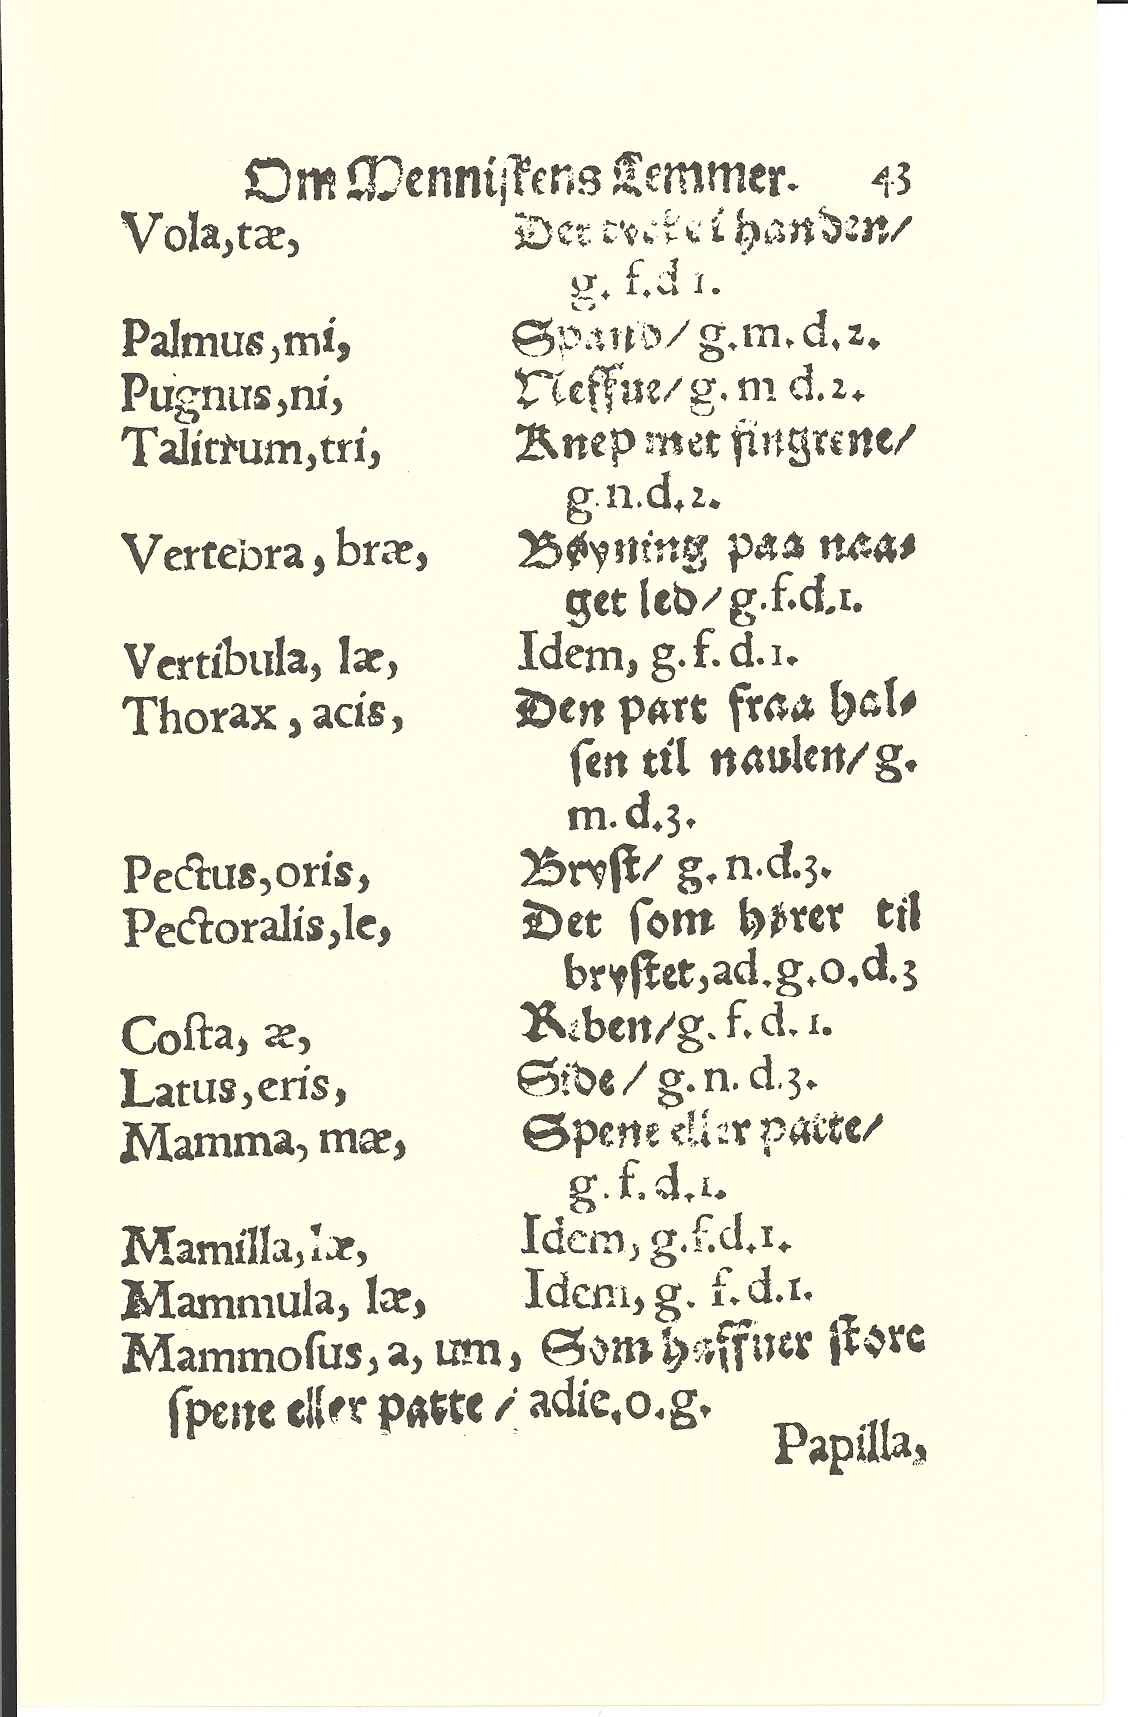 Om Menniſkens Lemmer. 43
Vola,tæ, Det tycke i handen/
g. f.d 1.
Palmus,mi, Spand/ g.m.d.2.
Pugnus,ni, Neffue/g.m d.2.
Talitrum,tri, Knep met fingrene/
g.n.d.2.
Vertebra, bræ, Bøyning paa naa-
get led/g.f.d.1.
Vertibula, læ, Idem, g.f.d.1.
Thorax, acis, Den part fraa hal-
ſen til naulen/g.
m.d.3.
Pectus,oris, Bryſt/ g.n.d.3.
Pectoralis,le, Det ſom hører til
bryſtet,ad.g.o.d.3
Coſta, æ, Riben/g. f. d. 1.
Latus,eris, Side/ g.n. d.3.
Mamma, mæ, Spene eller patte/
g.f.d.1.
Mamilla,læ, Idem, g.f.d.1.
Mammula, læ, Idem, g. f.d.1.
Mammoſus,a, um, Som haffuer ſtore
ſpene eller patte / adie.o.g.
Papilla,